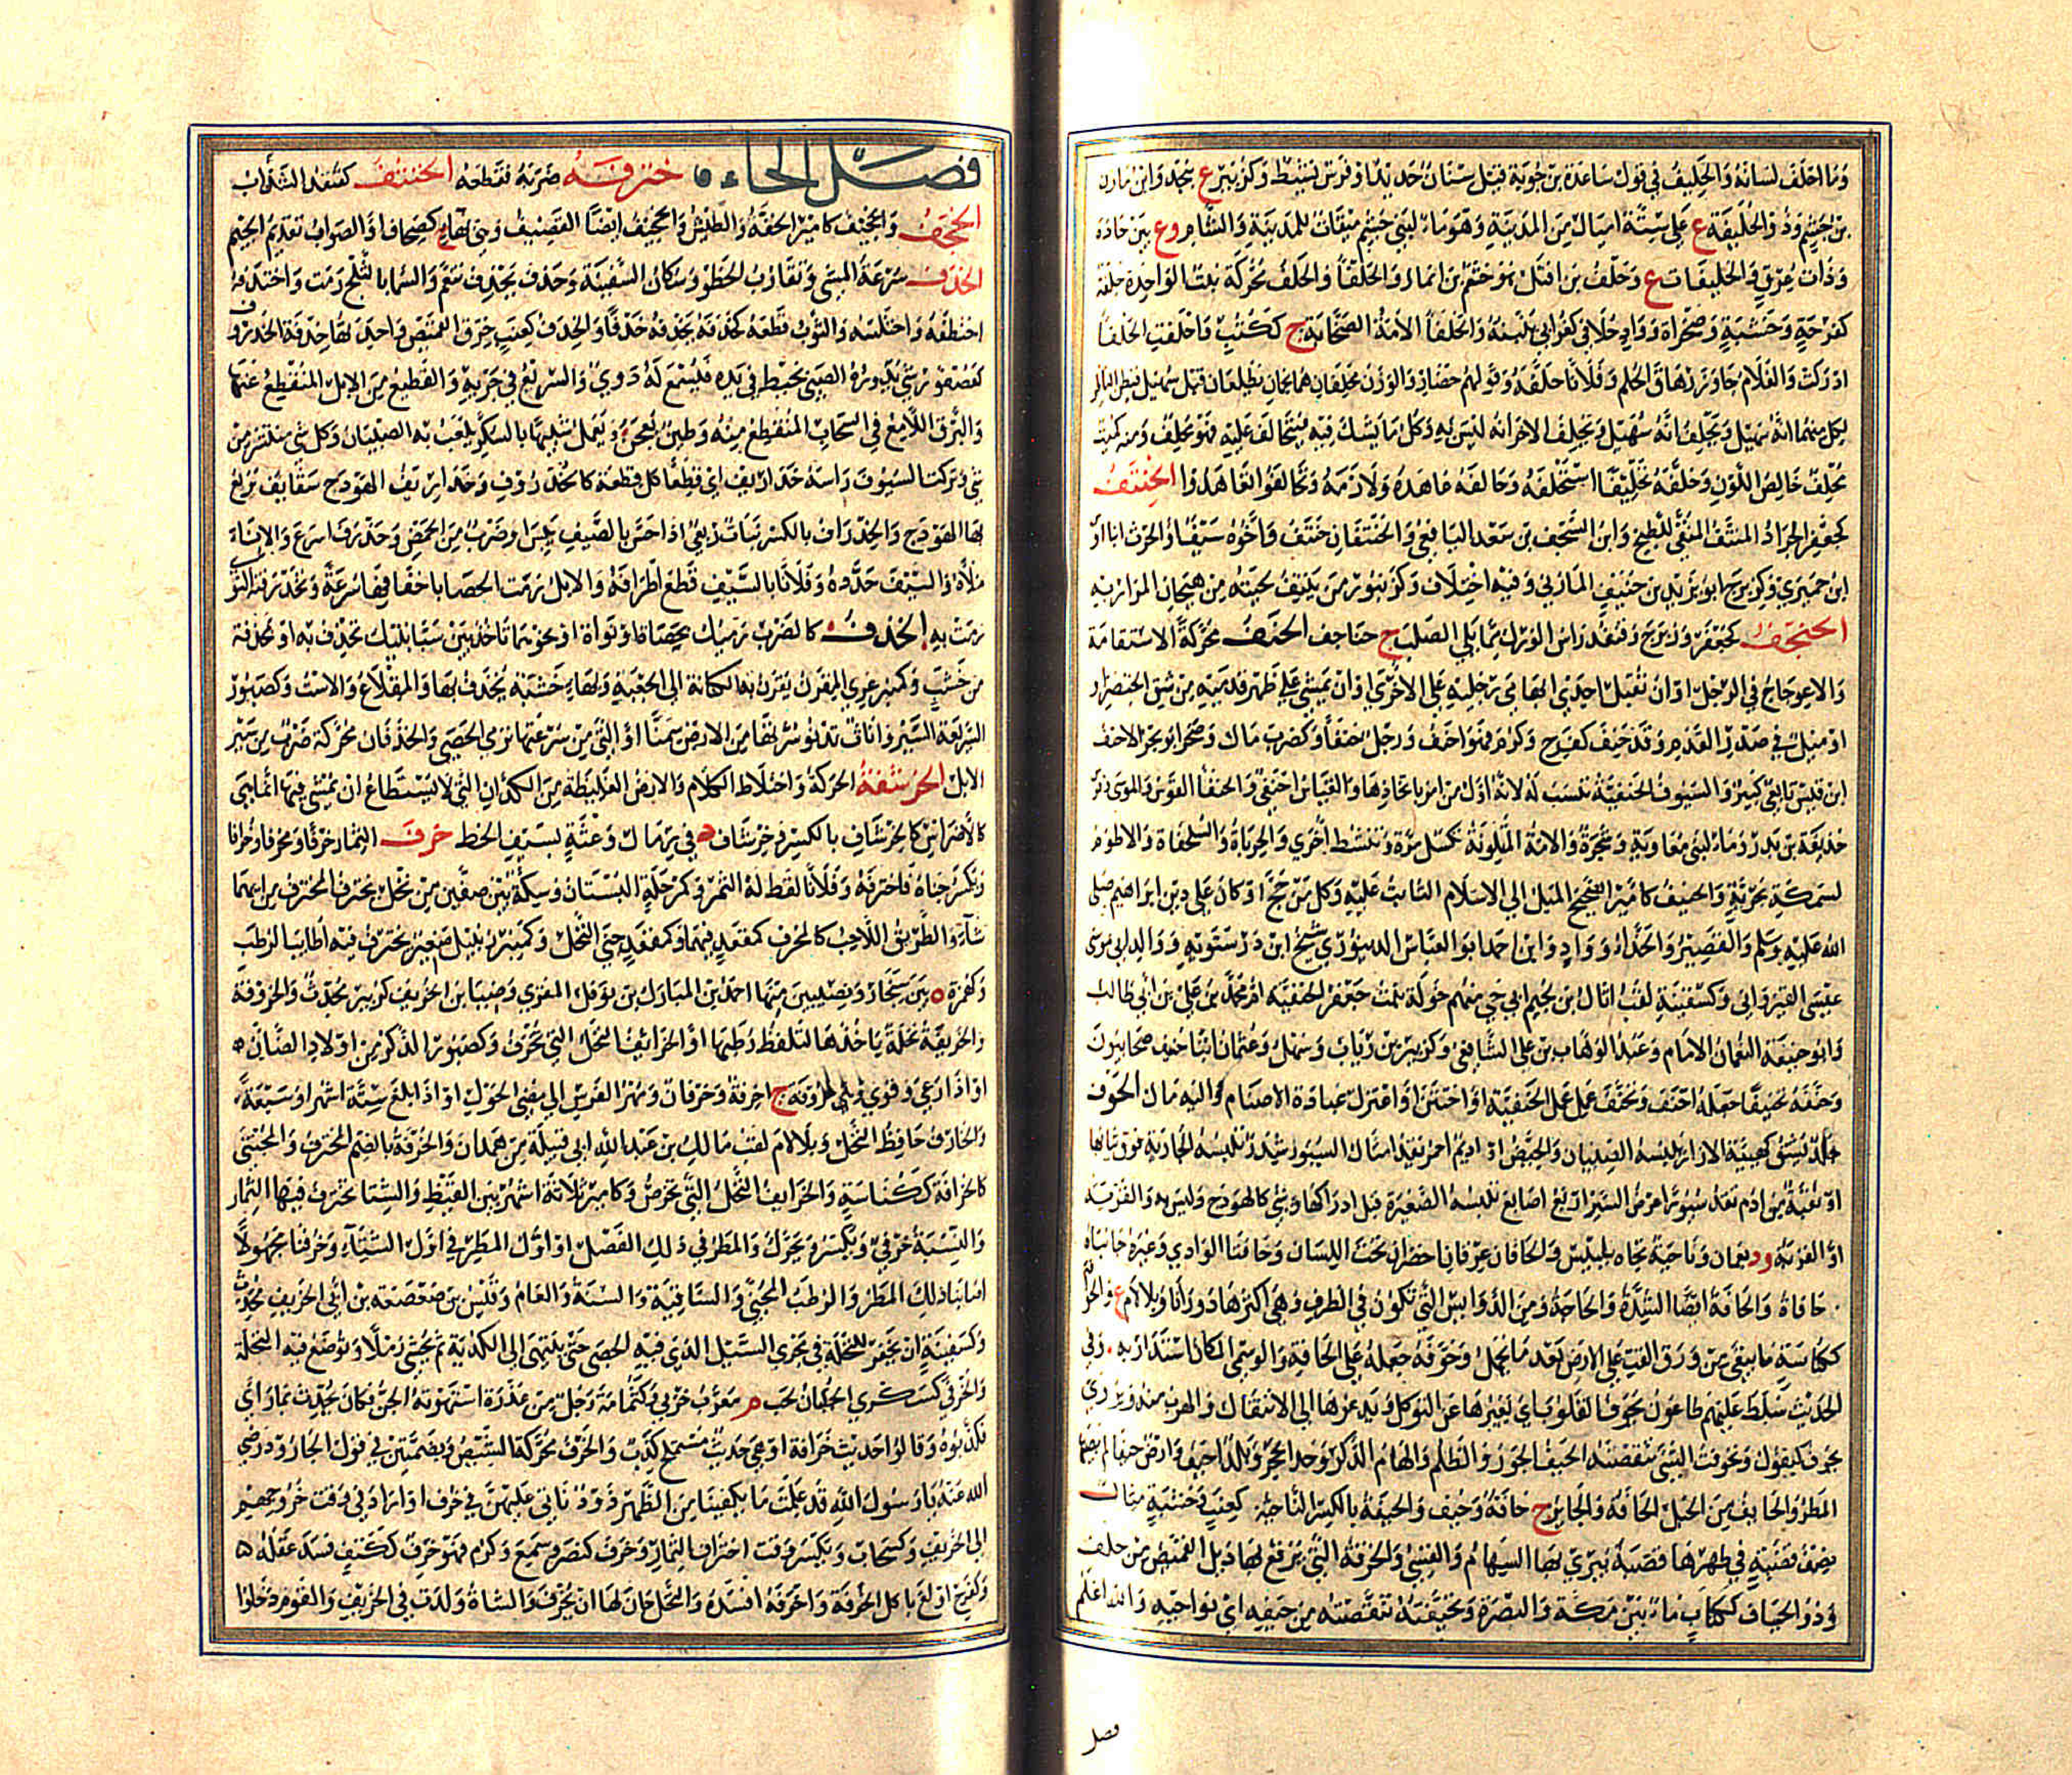 وما احلف لسانه والحليف في قول ساعدة بن جوية قيل سنان حديد او فرس نشيط وكزبير ع بنجد وابن مازن
بن جشم وذو الحليفة ع على ستة اميال من المدينة وهو ماء لبني جشم ميقات للمدينة والشام وع بين حاذة
وذات عرق والحليفات ع وحلف بن افتل هو خثعم بن انمار والحلفا والحلف محركة نبت الواحدة حلفة
كفرحة وخشبة وصحراة وواد حلافي كغرابي ينبته والحلفا الامة الصخابة ج ككتب واحلفت الحلفا
ادركت والغلام جاوز رهاق الحلم وفلانا حلفه وقولهم حضار والوزن محلفان هما نجمان يطلعان قبل سهيل فيظن الناظر
بكل منهما انه سهيل ويحلف انه سهيل ويحلف الاخر انه ليس به وكل ما يشك فيه فيتحالف عليه فهو محلف ومنه كميت
محلف خالص اللون وحلفه تحليفا استحلفه وحالفه عاهده ولازمه وتحالفوا تعاهدوا الحنتف
كجعفر الجراد المنتف المنقى للطبخ وابن السجف بن سعد اليافعي والحنتفان حنتف واخوه سيف او الحرث ابنا اوس
ابن حميري وكزبرج ابو يزيد بن حنتف المازني وفيه اختلاف وكزنبور من ينتف لحيته من هيجان المرار به
الحنجف كجعفر وزبرج وقنفذ راس الورك مما يلي الصلب ج حناجف الحنف محركة الاستقامة
والاعوجاج في الرجل او ان تقبل احدى ابهامي رجليه على الاخرى او ان يمشي على ظهر قدميه من شق الخنصر او
او ميل في صدر القدم وقد حنف كفرح وكرم فهو احنف ورجل حنفا وكضرب مال وصخر ابو بحر الاحنف
ابن قيس تابعي كبير والسيوف الحنيفية تنسب له لانه اول من امر باتخاذها والقياس احنفي والحنفا القوس والموسى وفرس
حذيفة بن بدر وماء لبني معاوية وشجرة والامة المتلونة تكسل مرة وتنشط اخرى والحرباة والسلحفاة والاطوم
لسمكة بحرية والحنيف كامير الصحيح الميل الى الاسلام الثابت عليه وكل من حج او كان على دين ابراهيم صلى
الله عليه وسلم والقصير والحذاء وواد وابن احمد ابو العباس الدينوري شيخ ابن درستويه ووالد ابي موسى
عيسى القيرواني وكسفينة لقب اثال بن لجيم ابي حي منهم خولة بنت جعفر الحنفية ام محمد بن علي بن ابي طالب
وابو حنيفة النعمان الامام وعبد الوهاب بن علي الشافعي وكزبير بن رياب وسهل وعثمان ابنا حنيف صحابيون
وحنفه تحنيفا جعله احنف وتحنف عمل عمل الحنفية او اختتن او اعتزل عبادة الاصنام واليه مال الحوف
جلد يشق كهيئة الازار يلبسه الصبيان والحيض او اديم احمر يقد امثال السيور ثم يجعل على السيور شذر تلبسه الجارية فوق ثيابها
او نقبة من ادم تقد سيورا عرض السير اربع اصابع تلبسه الصغيرة قبل ادراكها وشي كالهودج وليس به والقرية
او القربة ود بعمان وناحية تجاه بلبيس والحافان عرقان اخضران تحت اللسان وحافتا الوادي وغيره جانباه
ج حافات والحافة ايضا الشدة والحاجة ومن الدوابس التي تكون في الطرف وهي اكثرها دورانا وبلا لام ع والحوافة
ككناسة ما يبقى من ورق القت على الارض بعد ما يحمل وحوفه جعله على الحافة والوسمي المكان استدار به وفي
الحديث سلط عليهم طاعون يحوف القلوب اي يغيرها عن التوكل ويدعوها الى الانتقال والهرب منه ويروى
يحوف كيقول وتحوفت الشيء تنقصته الحيف الجور والظلم والهام الذكر وحد الحجر وبلد احيف وارض حيفا لم يصبها
المطر والحايف من الجبل الحافة والجاير ج حافة وحيف والحيفة بالكسر الناحية كعنب وخشبة مثال
نصف قصبة في ظهرها قصبة يبرى بها السهام والقسي والخرقة التي يرقع بها ذيل القميص من خلف
وذو الحياف ككتاب ماء بين مكة والبصرة وتحيفته تنقصته من حيفه اي نواحيه والله اعلم
فصل
فصل الخاء ختـرفـه ضربه فقطعه الخنتف كقنفذ السذاب
الخجف والخجيف كامير الخفة والطيش والخجيف ايضا القضيف وهي بهاء ج كصحاف او الصواب تقديم الجيم
الخدف سرعة المشي وتقارب الخطو وسكان السفينة وخدف يخدف تنعم والسما بالثلج رمت واختدفه
اختطفه واختلسه والثوب قطعه كخدفه يخدفه خدفا والخدف كعنب خرق القميص واحدتها خدفة الخذروف
كعصفور شي يدوره الصبي بخيط في يده فيسمع له دوي والسريع في جريه والقطيع من الابل المنقطع عنها
والبرق اللامع في السحاب المنقطع منه وطين يعجن يعمل شبيها بالسكر يلعب به الصبيان وكل شي منتشر من
شي وتركت السيوف راسه خذاريف اي قطعا كل قطعة كالخذروف وخذاريف الهودج سقايف يربع
بها الهودج والخذراف بالكسر نبات ربعي اذا احس بالصيف يبس او ضرب من الحمض وخذرف اسرع والاناء
ملاه والسيف حدده وفلانا بالسيف قطع اطرافه والابل رمت الحصا باخفافها سرعة وتخذرفته النوى
رمت به الخذف كالضرب رميك بحصاة او نواة او نحوهما تاخذ بين سبابتيك تخذف به او بمخذفة
من خشب وكمنبر عرى المقرن يقرن بها الكنانة الى الجعبة وبهاء خشبة يخذف بها والمقلاع والاست وكصبور
السريعة السير واتان تدنو سرتها من الارض سمنا او التي من سرعتها ترمي الحصى والخذفان محركة ضرب من سير
الابل الخرشفة الحركة واختلاط الكلام والارض الغليظة من الكذان التي لا يستطاع ان يمشى فيها انما هي
كالاضراس كالخرشاف بالكسر وخرشاف د في رمال وعثة بسيف الخط خرف الثمار خرفا ومخرفا وخرافا
ويكسر جناه فاخترفه وفلانا لقط له التمر وكمرحلة البستان وسكة بين صفين من نخل يخترف المخترف من ايهما
شاء والطريق اللاحب كالمخرف كمقعد فيهما وكمقعد جنى النخل وكمنبر زبيل صغير يخترف فيه اطايب الرطب
وكهمزة ة بين سنجار ونصيبين منها احمد بن المبارك بن نوفل المقري وضبيا بن الخريف كزبير محدث والخروفة
والخريفة نخلة ياخذها لتلقط رطبها او الخرائف النخل التي تخرف وكصبور الذكر من اولاد الضان
او اذا رعى وقوي وهي خروفة ج اخرفة وخرفان ومهر الفرس الى مضي الحول او اذا بلغ ستة اشهر او سبعة
والخارف حافظ النخل وبلا لام لقب مالك بن عبد الله ابي قبيلة من همدان والخرفة بالضم المخترف والمجتنى
كالخرافة ككناسة والخرايف النخل التي تخرص وكامير ثلاثة اشهر بين القيظ والشتا تخترف فيها الثمار
والنسبة خرفي ويكسر ويحرك والمطر في ذلك الفصل او اول المطر في اول الشتاء وخرفنا مجهولا
اصابنا ذلك المطر والرطب المجني والساقية والسنة والعام وقيس بن صعصعة بن ابي الخريف محدث
وكسفينة ان يحفر للنخلة في مجرى السيل الذي فيه الحصى حتى ينتهى الى الكدية ثم يحشى رملا وتوضع فيه النخلة
والخرفى كسكرى الجلبان لحب م معرب خربي وكثمامة رجل من عذرة استهوته الجن فكان يحدث بما راى
فكذبوه وقالوا حديث خرافة او هي حديث مستملح كذب والخرف محركة الشيص وبضمتين في قول الجارود رضي
الله عنه يا رسول الله قد علمت ما يكفينا من الظهر ذود ناتي عليهن في خرف اراد في وقت خروجهم
الى الخريف وكسحاب ويكسر وقت اختراف الثمار وخرف كنصر وسمع وكرم فهو خرف ككتف فسد عقله
وكفرح اولع باكل الخرفة واخرفه افسده والنخل حان لها ان يخرف والشاة ولدت في الخريف والقوم دخلوا